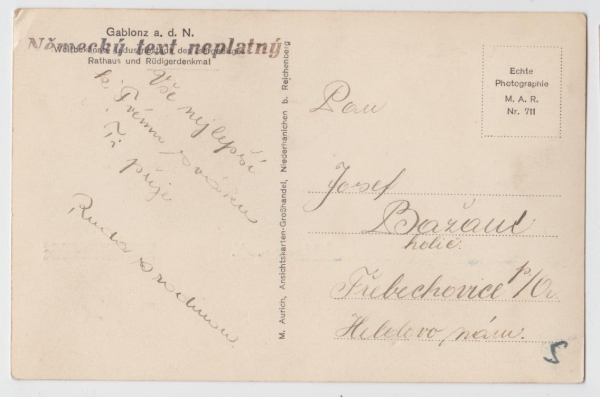 Gablonz a. d. N.
Německý text neplatný
Rathaus und Rüdigerdenkmal
Vše nejlepší
k Tvému svátku
Ti přeje
Ruda s rodinou.
M. Aurich, Ansichtskarten-Großhandel, Niederhanichen b. Reichenberg
Echte
Photographie
M. A. R.
Nr. 711
Pan
Josef
Bažant
holič.
Třebechovice p/Or
nám.
5